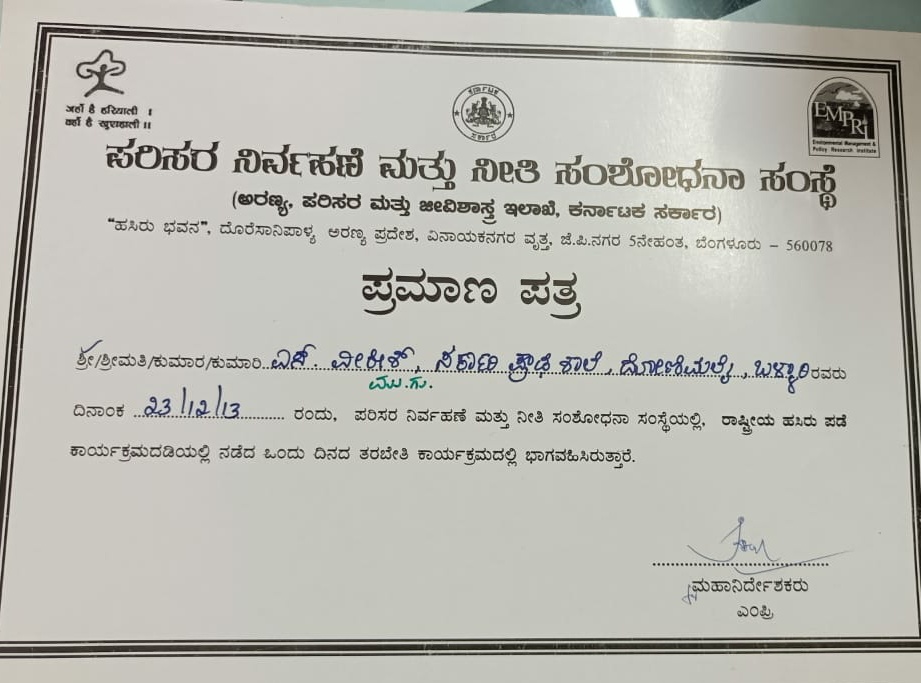 जहाँ है हरियाली ।
वहाँ है खुशहाली ॥
ಕರ್ನಾಟಕ
ಸರ್ಕಾರ
EMPRI
Environmental Management &
Policy Research Institute
ಪರಿಸರ ನಿರ್ವಹಣೆ ಮತ್ತು ನೀತಿ ಸಂಶೋಧನಾ ಸಂಸ್ಥೆ
(ಅರಣ್ಯ, ಪರಿಸರ ಮತ್ತು ಜೀವಿಶಾಸ್ತ್ರ ಇಲಾಖೆ, ಕರ್ನಾಟಕ ಸರ್ಕಾರ)
"ಹಸಿರು ಭವನ", ದೊರೆಸಾನಿಪಾಳ್ಯ ಅರಣ್ಯ ಪ್ರದೇಶ, ವಿನಾಯಕನಗರ ವೃತ್ತ, ಜೆ.ಪಿ.ನಗರ 5ನೇಹಂತ, ಬೆಂಗಳೂರು – 560078
ಪ್ರಮಾಣ ಪತ್ರ
ಶ್ರೀ/ಶ್ರೀಮತಿ/ಕುಮಾರ/ಕುಮಾರಿ ಎಸ್. ವೀರೇಶ್, ಸರ್ಕಾರಿ ಪ್ರೌಢ ಶಾಲೆ, ದೋಣಿಮಲೈ, ಬಳ್ಳಾರಿ ರವರು
ಮು.ಗು.
ದಿನಾಂಕ 23/12/13 ರಂದು, ಪರಿಸರ ನಿರ್ವಹಣೆ ಮತ್ತು ನೀತಿ ಸಂಶೋಧನಾ ಸಂಸ್ಥೆಯಲ್ಲಿ, ರಾಷ್ಟ್ರೀಯ ಹಸಿರು ಪಡೆ
ಕಾರ್ಯಕ್ರಮದಡಿಯಲ್ಲಿ ನಡೆದ ಒಂದು ದಿನದ ತರಬೇತಿ ಕಾರ್ಯಕ್ರಮದಲ್ಲಿ ಭಾಗವಹಿಸಿರುತ್ತಾರೆ.
ಮಹಾನಿರ್ದೇಶಕರು
ಎಂಪ್ರಿ